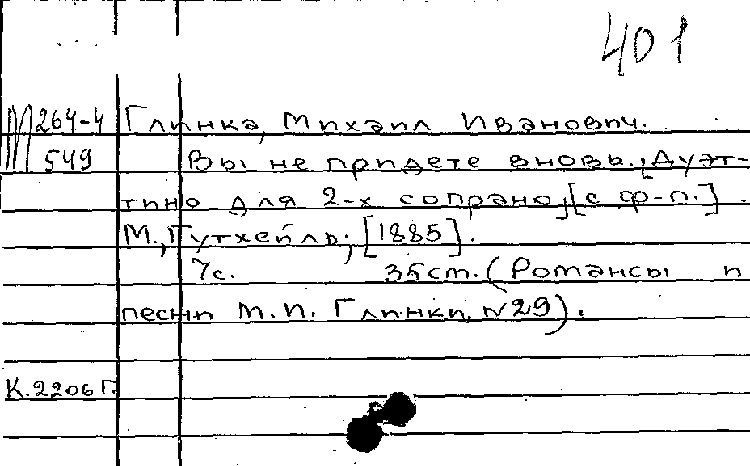 401
М 264-4 Глинка, Михаил Иванович.
549 Вы не придете вновь. [Дуэт-
тино для 2-х сопрано], [с ф-п.]
М., Гутхейль, [1885].
7с. 35см. (Романсы и
песни М.И. Глинки, №29).
К.2206Г.